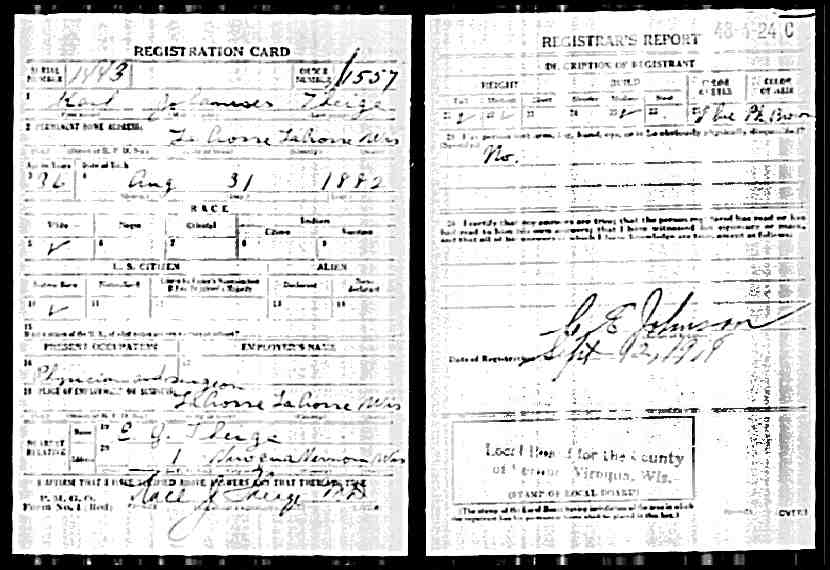 REGISTRATION CARD
SERIAL NUMBER 1443 ORDER NUMBER 1557
1 Karl Johannes Theige
2 PERMANENT HOME ADDRESS
La Crosse La Crosse Wis
Age in Years Date of Birth
3 36 4 Aug 31 1882
RACE
White Negro Oriental Indian
Citizen
5 ✓ 6 7 8 9
U. S. CITIZEN ALIEN
Native Born Naturalized Declarant Non-declarant
10 ✓ 11 12 13 14
15
PRESENT OCCUPATION EMPLOYER'S NAME
16 Physician and surgeon
18 PLACE OF EMPLOYMENT OR BUSINESS
La Crosse La Crosse Wis
NEAREST RELATIVE Name 19 E. J. Theige
Address 20 Viroqua Vernon Wis
I AFFIRM THAT I HAVE VERIFIED ABOVE ANSWERS AND THAT THEY ARE TRUE
P. M. G. O.
Form No. 1 (Red) Karl J Theige
REGISTRAR'S REPORT 48-4-24 C
DESCRIPTION OF REGISTRANT
HEIGHT BUILD COLOR OF EYES COLOR OF HAIR
Tall Medium Short Slender Medium Stout
21 22 23 24 25 ✓ 26 27 Blue
29 Has person lost arm, leg, hand, eye, or is he obviously physically disqualified?
(Specify.) No.
30 I certify that my answers are true; that the person registered has read or has
had read to him his own answers; that I have witnessed his signature or mark,
and that all of his answers of which I have knowledge are true, except as follows:
C E Johnson
Date of Registration Sept 12, 1918
Local Board for the County
of Vernon, Viroqua, Wis.
(STAMP OF LOCAL BOARD)
(The stamp of the Local Board having jurisdiction of the area in which
the registrant has his permanent home shall be placed in this box.)
(OVER)